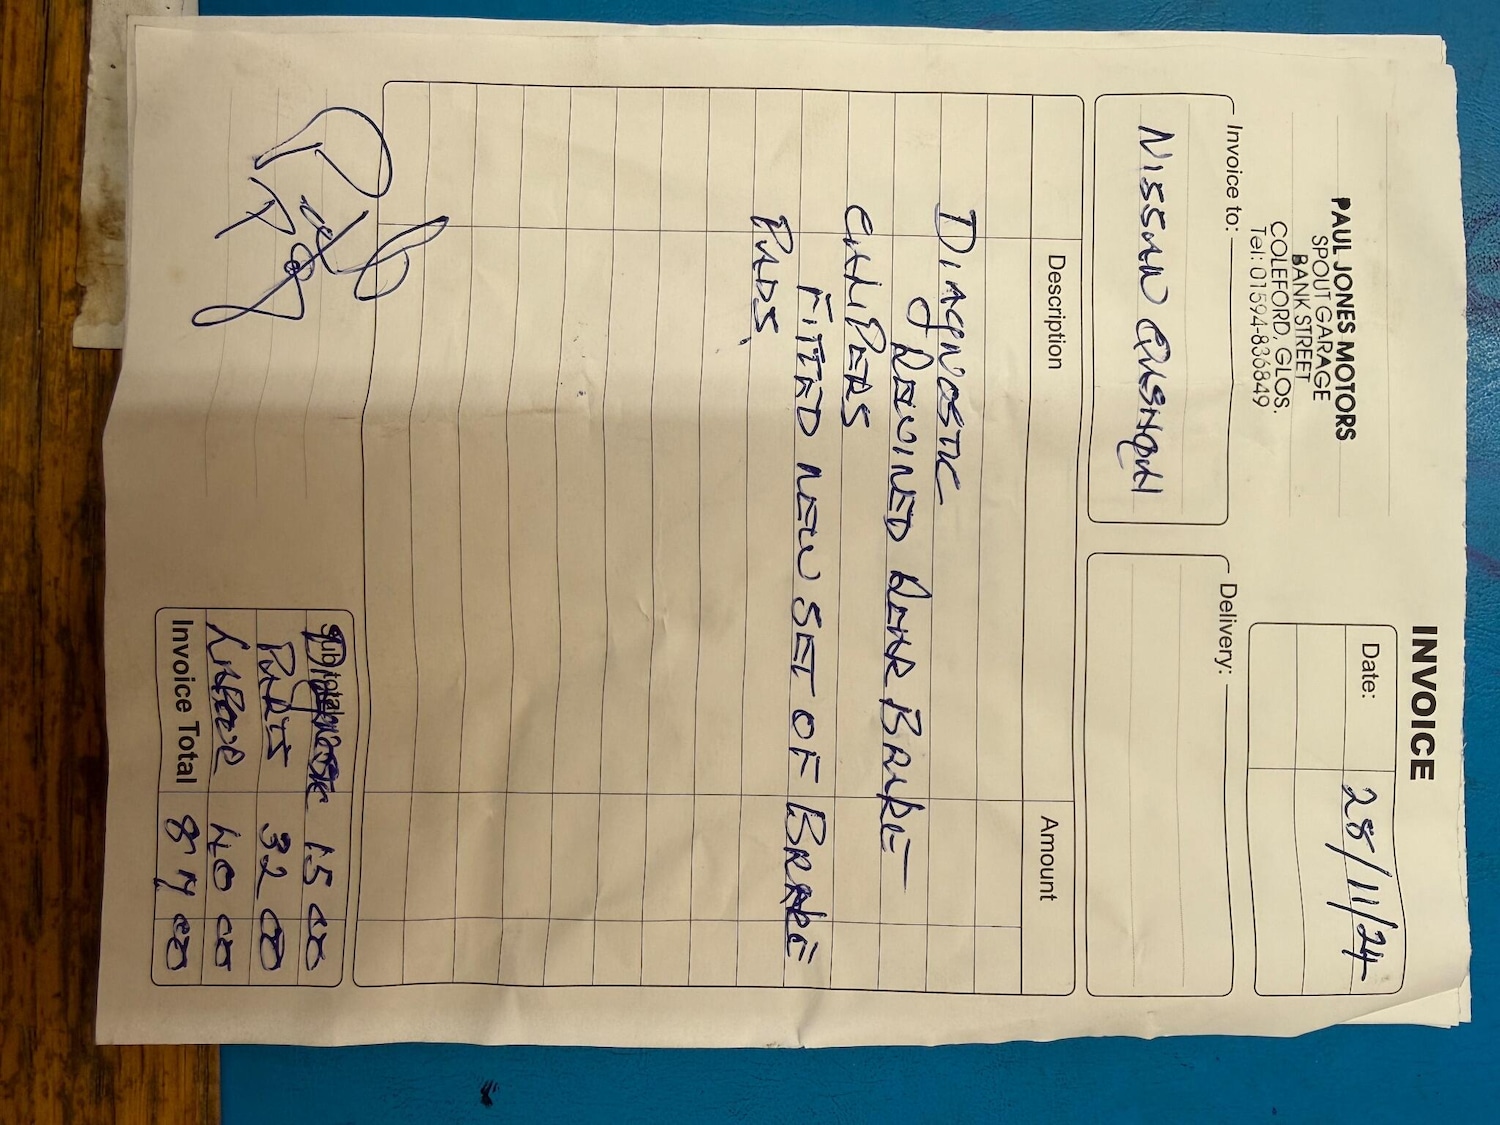 INVOICE
PAUL JONES MOTORS
SPOUT GARAGE
BANK STREET
COLEFORD, GLOS.
Tel: 01594-836849
Date: 28/11/24
Invoice to:
NISSAN QASHQAI
Delivery:
Description Amount
DIAGNOSTIC
REWINED REAR BRAKE
CALIPERS
FITTED NEW SET OF BRAKE
PADS
Sub total DIAGNOSTIC 15 00
PARTS 32 00
LABOUR 40 00
Invoice Total 87 00